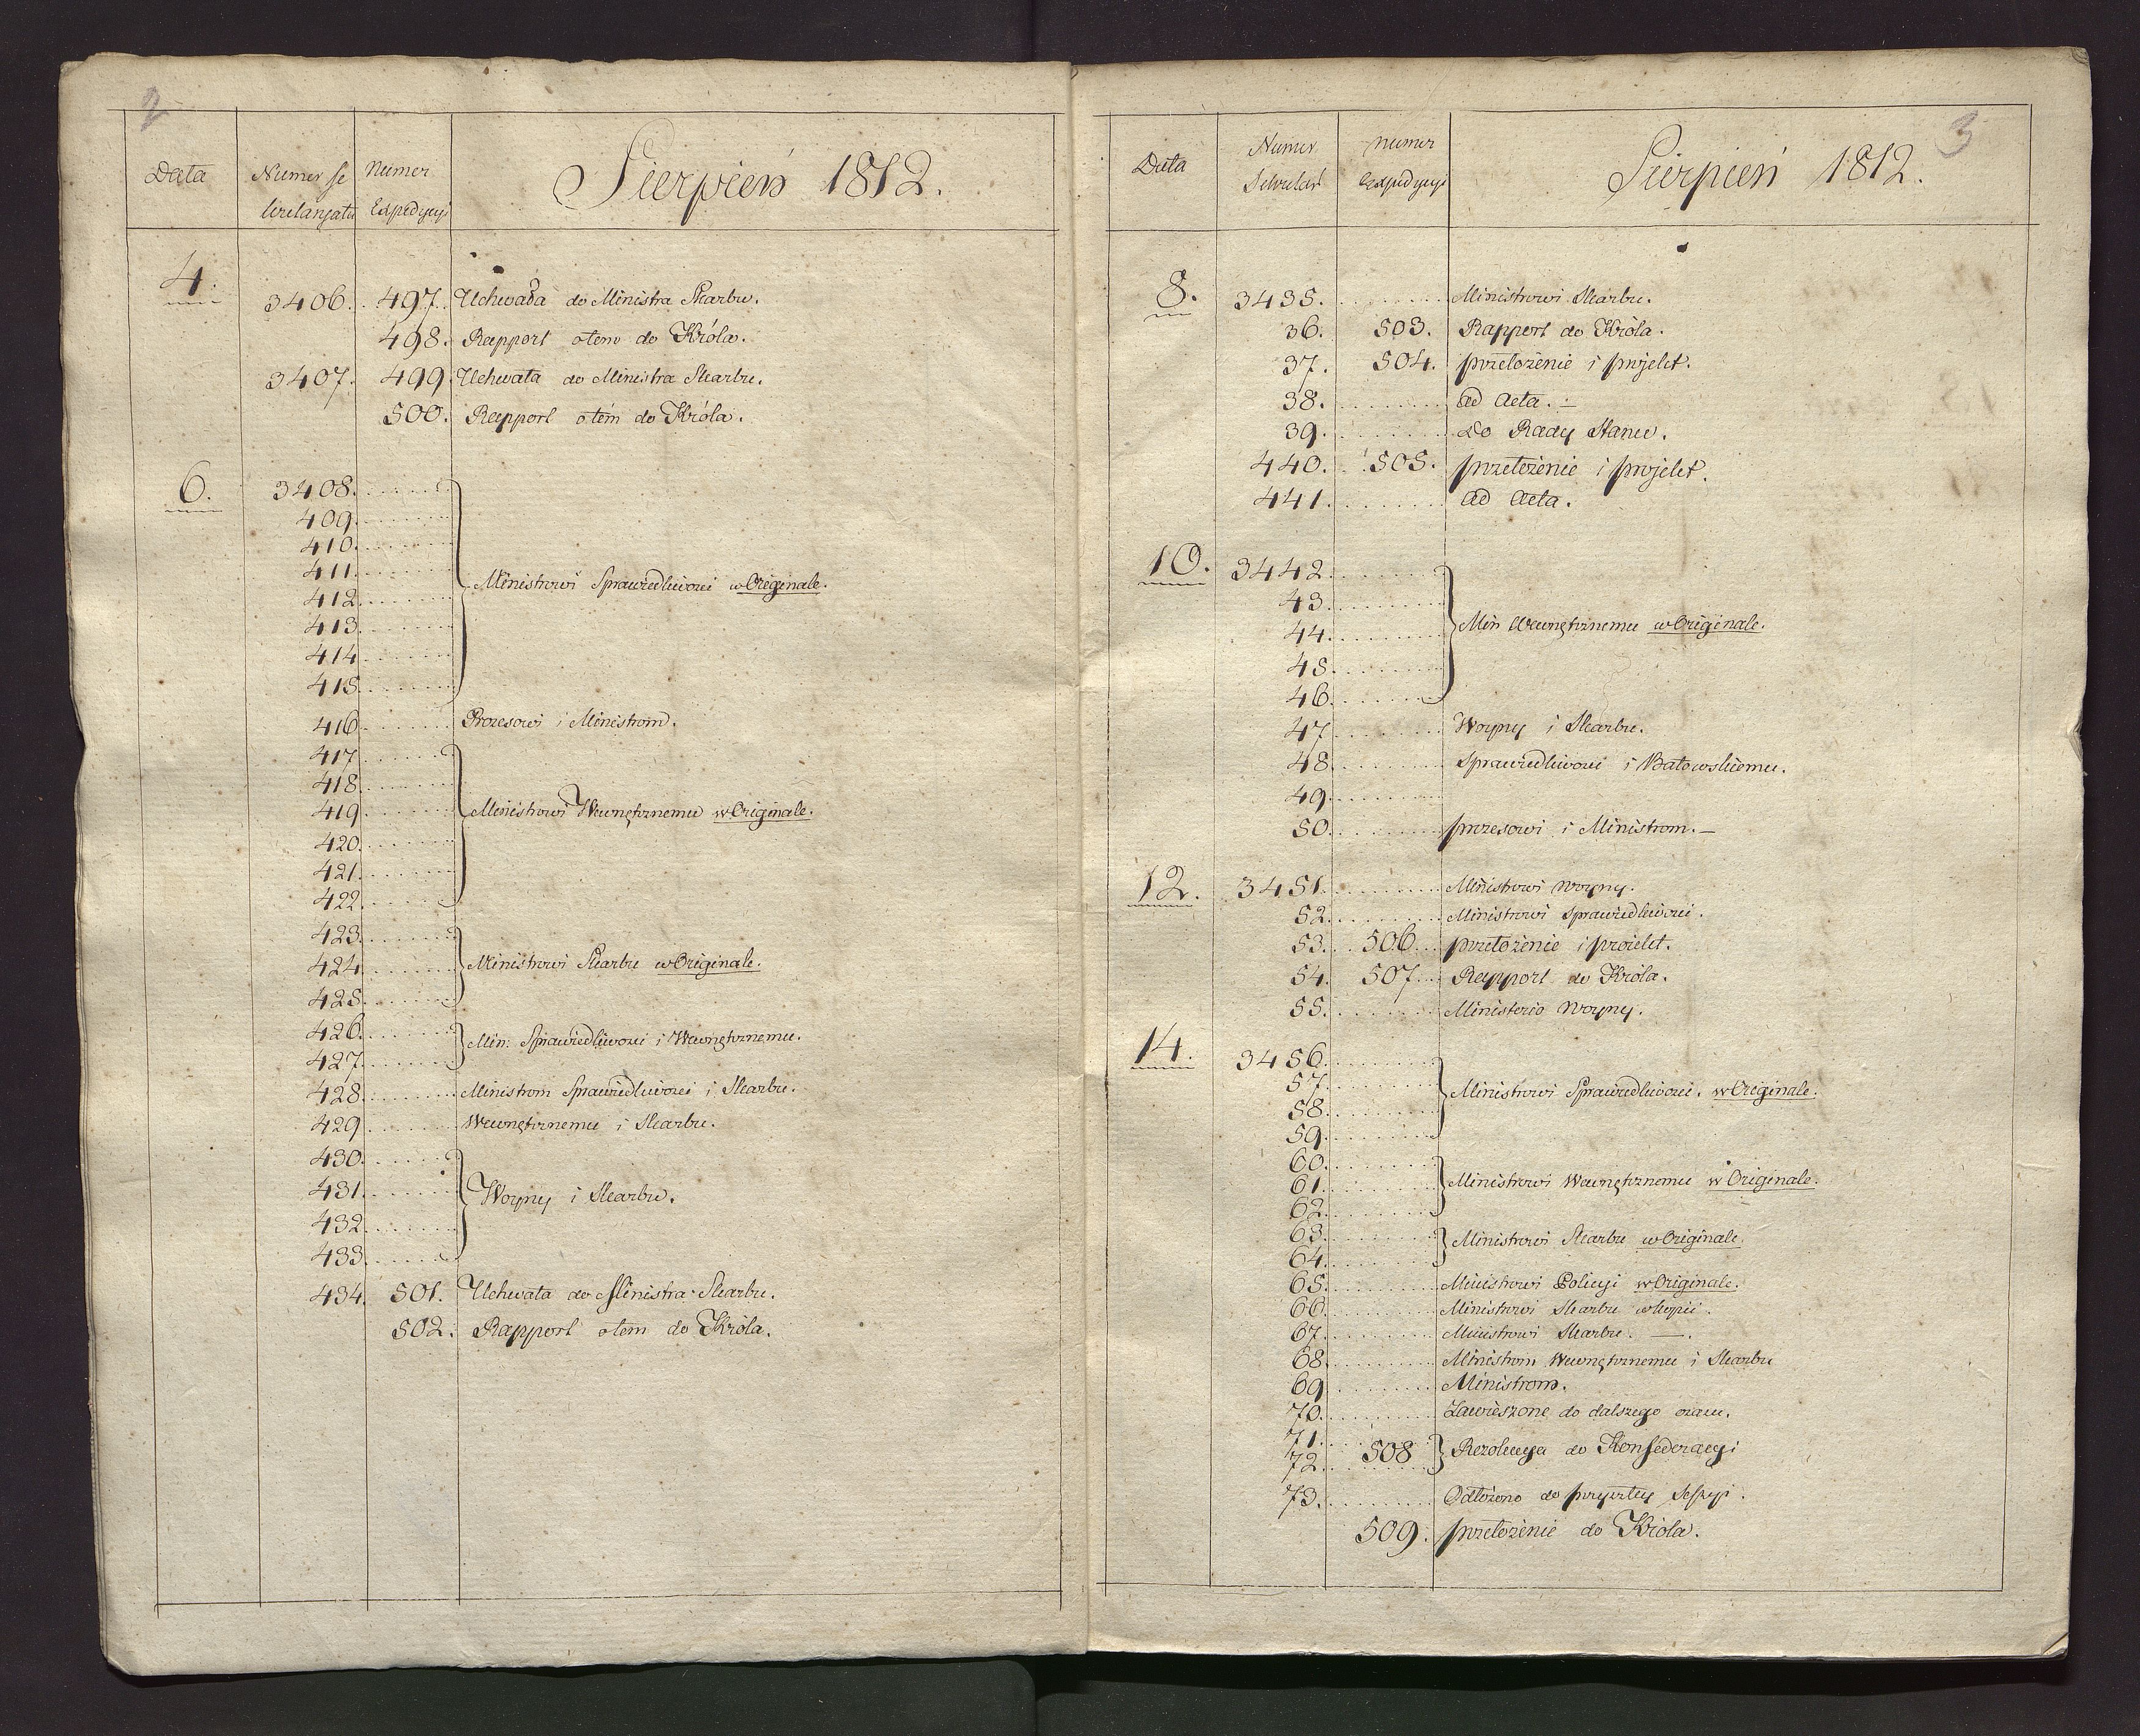 2
Data
Numer Se
kretaryatu
Numer
Expedycyi
Sierpień 1812.
4.
3406. 497. Uchwała do Ministra Skarbu.
498. Rapport otem do Króla.
3407. 499. Uchwała do Ministra Skarbu.
500. Rapport otém do Króla.
6.
3408.
409.
410.
411.
Ministrowi Sprawiedliwości w Originale.
412.
413.
414
415.
416. Prezesowi i Ministrom.
417
418.
419. Ministrowi Wewnętrznemu w Originale.
420.
421.
422.
423.
424. Ministrowi Skarbu w Originale.
425.
426.
Min: Sprawiedliwości i Wewnętrznemu.
427.
428. Ministrom Sprawiedliwości i Skarbu.
429. Wewnętrznemu i Skarbu.
430.
431. Woyny i Skarbu.
432.
433.
434. 501. Uchwała do Ministra Skarbu.
502. Rapport otem do Króla.
3
Data
Numer
Sekretar
Numer
Expedycyi
Sierpień 1812.
8. 3435. Ministrowi Skarbu.
36. 503. Rapport do Króla.
37. 504. przełożenie i projekt.
38. ad Acta. :-
39. do Rady Stanu.
440. 505. przełożenie i projekt.
441. ad Acta.
10. 3442.
43.
44. Min Wewnętrznemu w Originale.
45.
46.
47. Woyny i Skarbu.
48. Sprawiedliwości i Batowskiemu.
49.
50. prezesowi i Ministrom. –
12. 3451. Ministrowi Woyny.
52. Ministrowi Sprawiedliwości.
53. 506. przełożenie i proiekt.
54. 507. Rapport do Króla.
55. Ministerio Woyny.
14. 3456.
57. Ministrowi Sprawiedliwości. w Originale.
58.
59.
60.
61. Ministrowi Wewnętrznemu w Originale.
62.
63. Ministrowi Skarbu w Originale.
64.
65. Ministrowi Policyi w Originale.
66. Ministrowi Skarbu w kopii.
67. Ministrowi Skarbu. —.
68. Ministrom Wewnętrznemu i Skarbu
69. Ministrom.
70. Zawieszone do dalszego czasu.
71.
508 Rezolucya do Konfederacyi
72.
73. Odłożono do przyszłey Sessyi.
509. przełożenie do Króla.